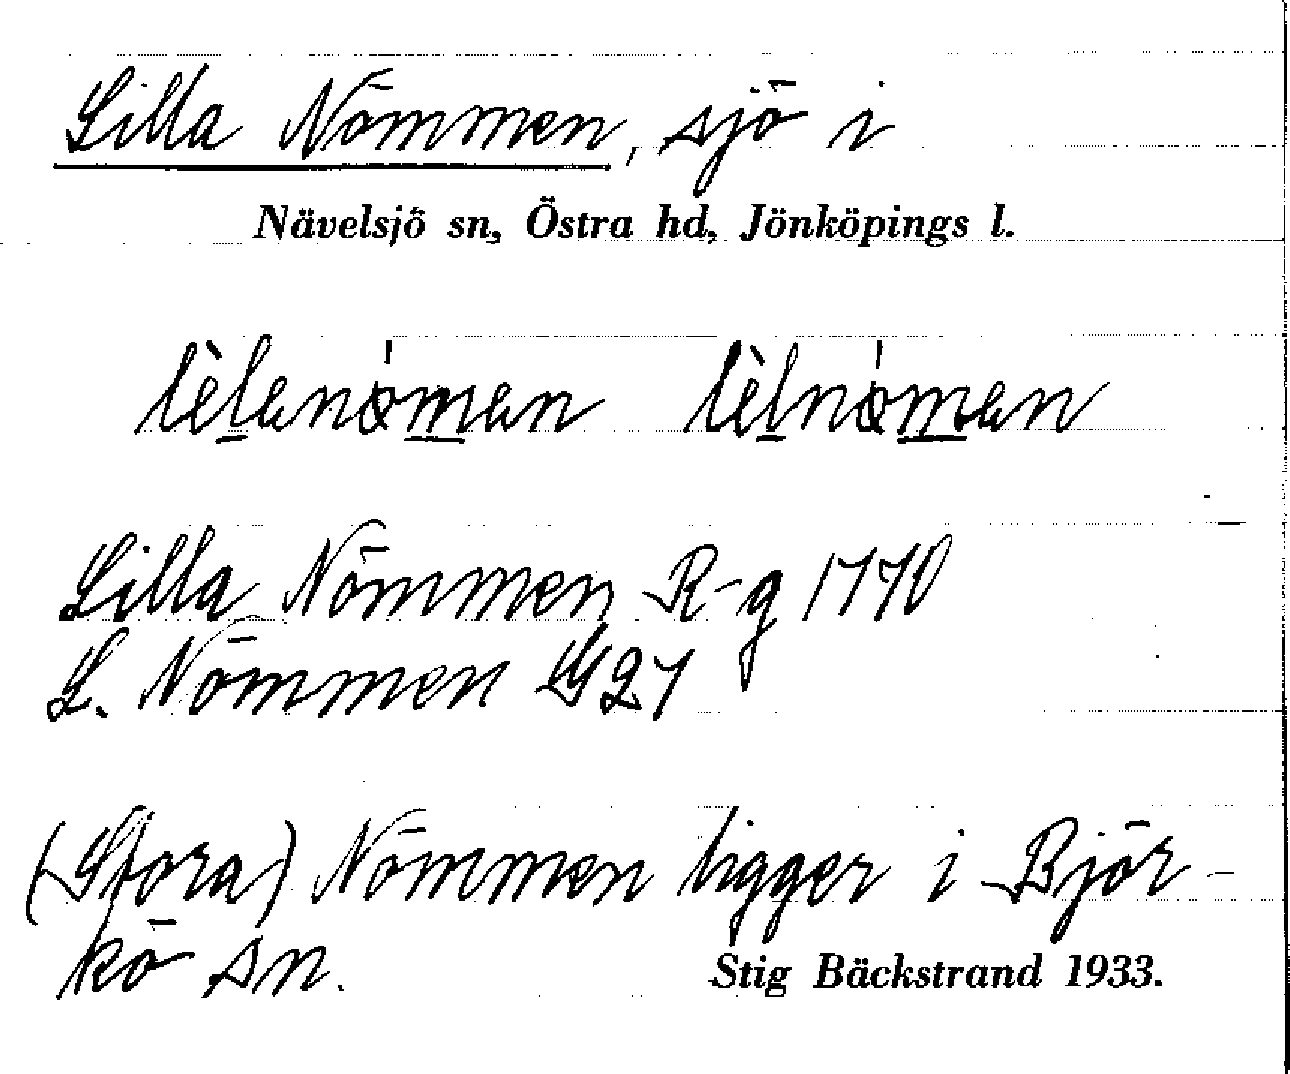 Lilla Nömmen, sjö i
Nävelsjö sn, Östra hd, Jönköpings l.
lèlanø̍man lèlnø̍man
Lilla Nömmen R-g 1770
L. Nömmen
(Stora) Nömmen ligger i Björ-
kö sn.
Stig Bäckstrand 1933.